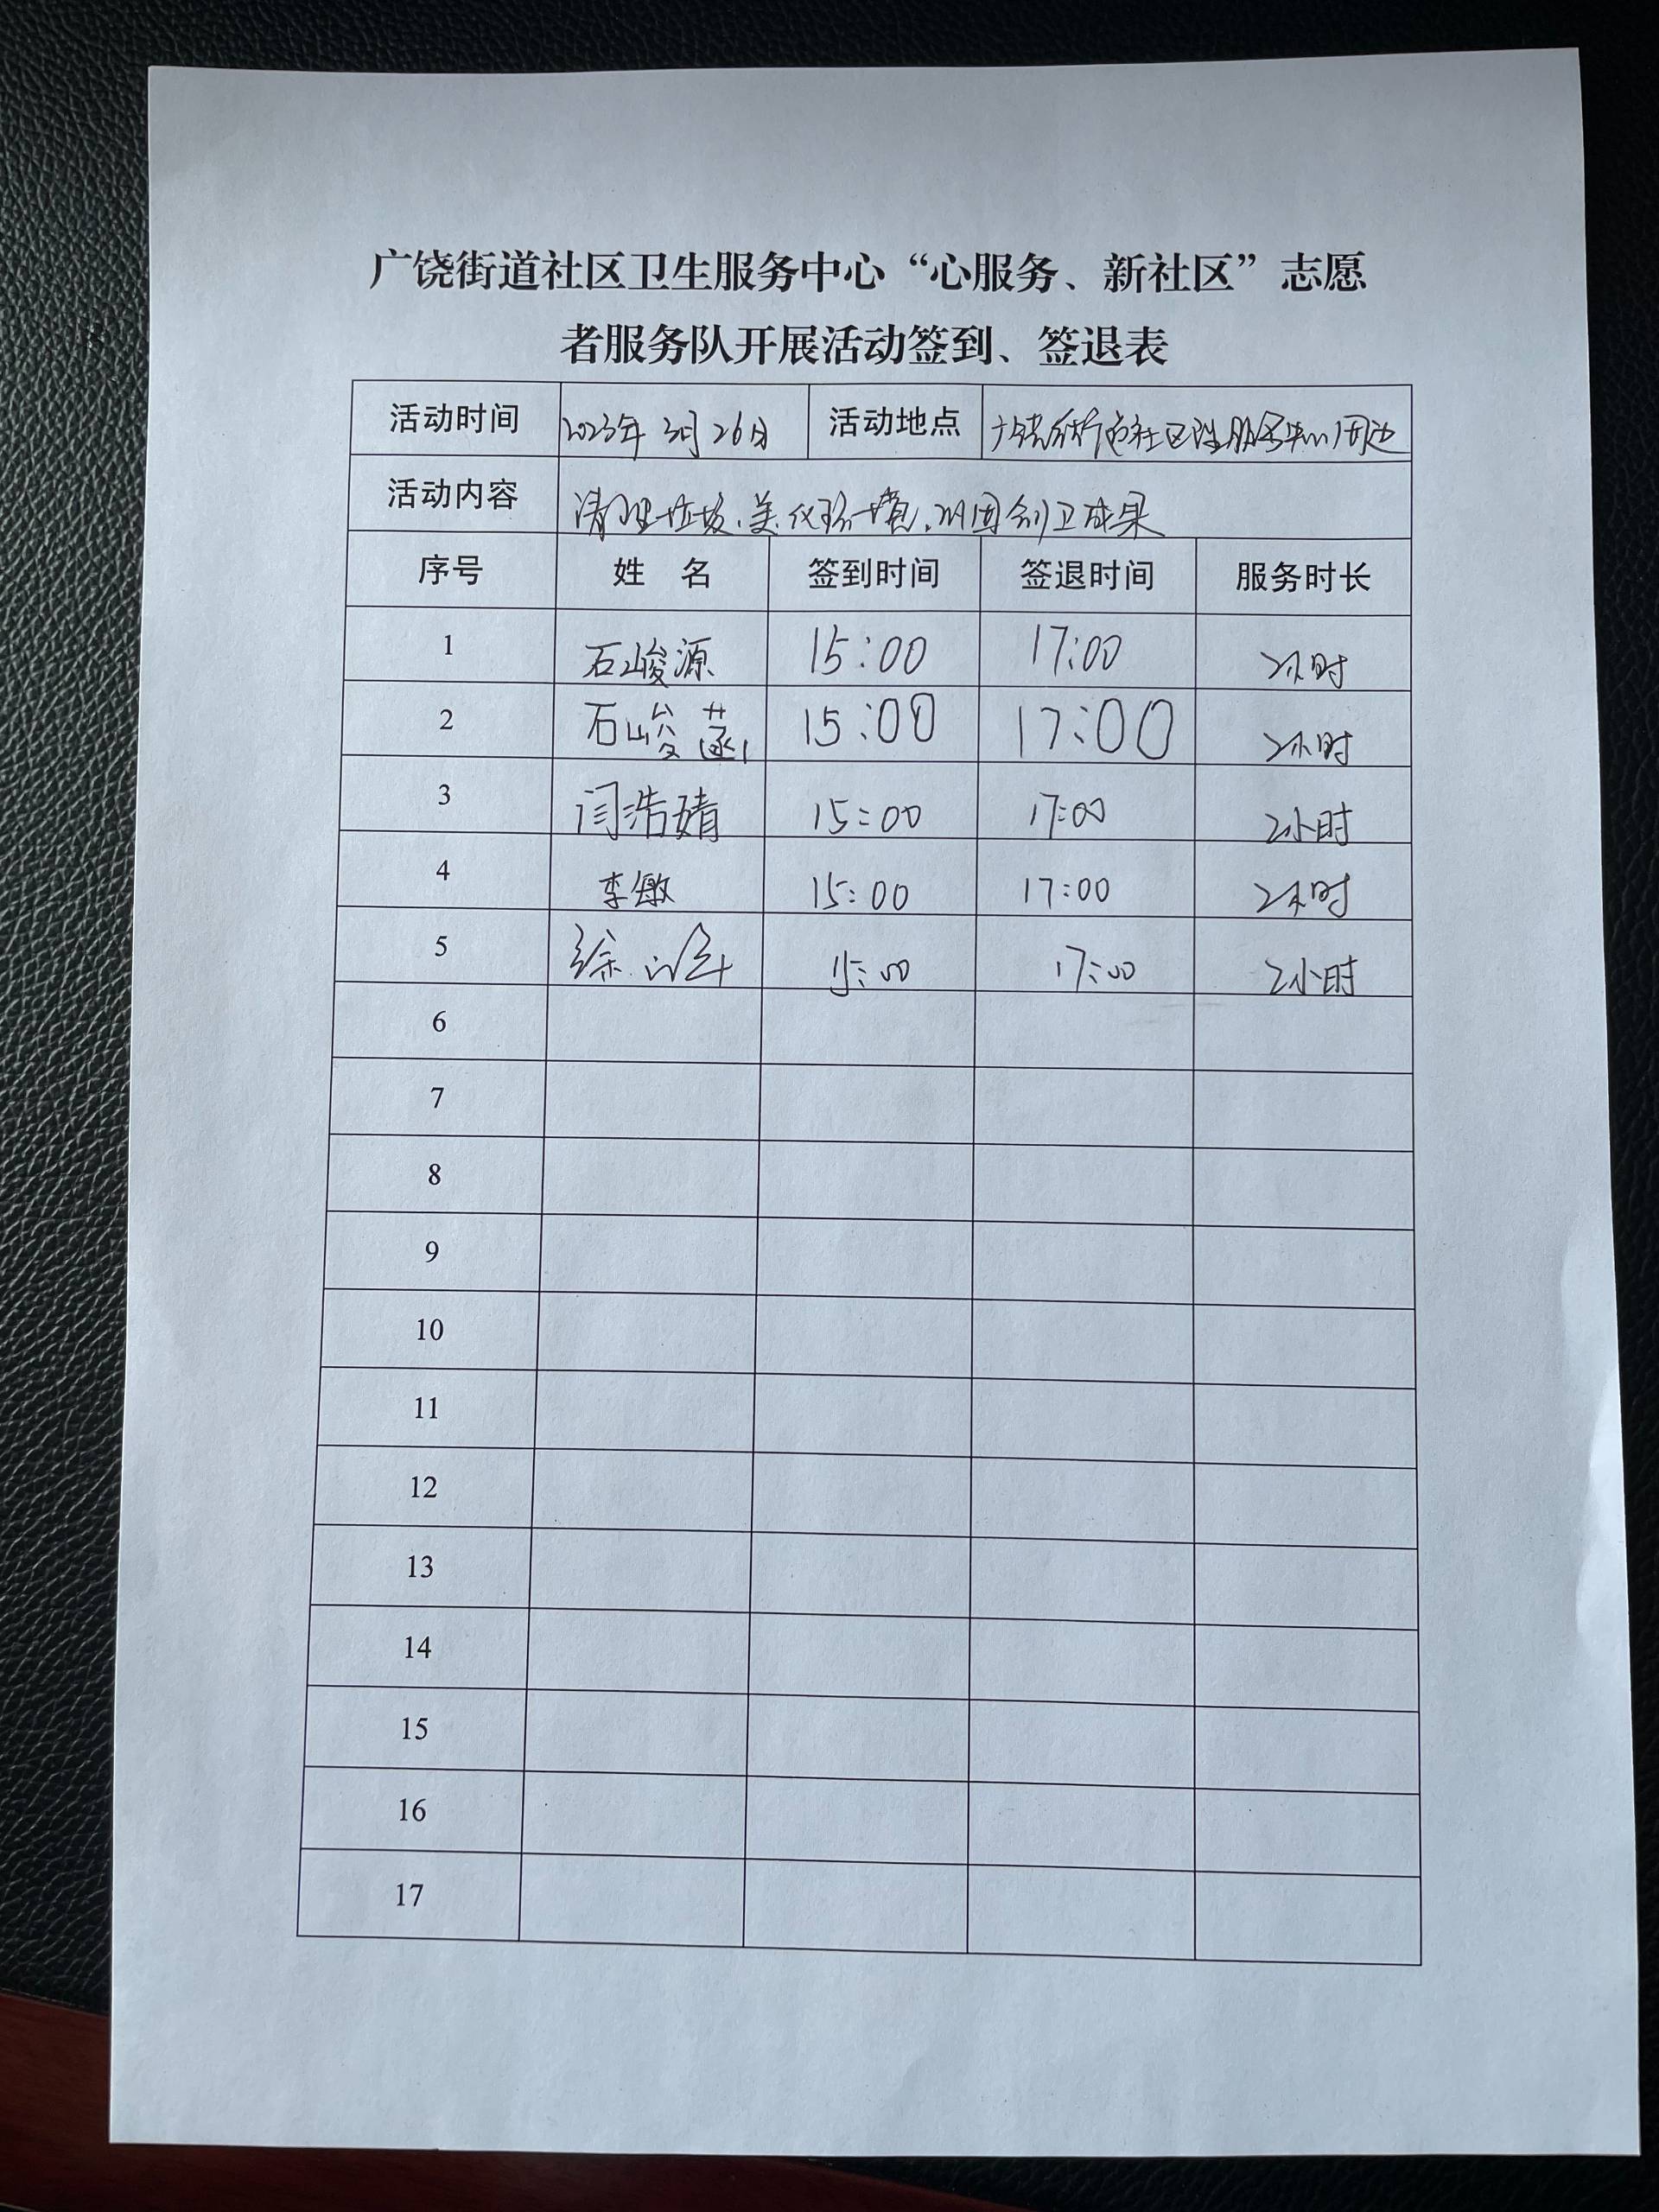 广饶街道社区卫生服务中心“心服务、新社区”志愿
者服务队开展活动签到、签退表
活动时间 2023年3月26日 活动地点 广饶街道社区卫生服务中心周边
活动内容 清理垃圾、美化环境、巩固创卫成果
序号 姓 名 签到时间 签退时间 服务时长
1 石峻源 15:00 17:00 2小时
2 石峻菡 15:00 17:00 2小时
3 闫浩婧 15:00 17:00 2小时
4 李敏 15:00 17:00 2小时
5 徐 15:00 17:00 2小时
6
7
8
9
10
11
12
13
14
15
16
17